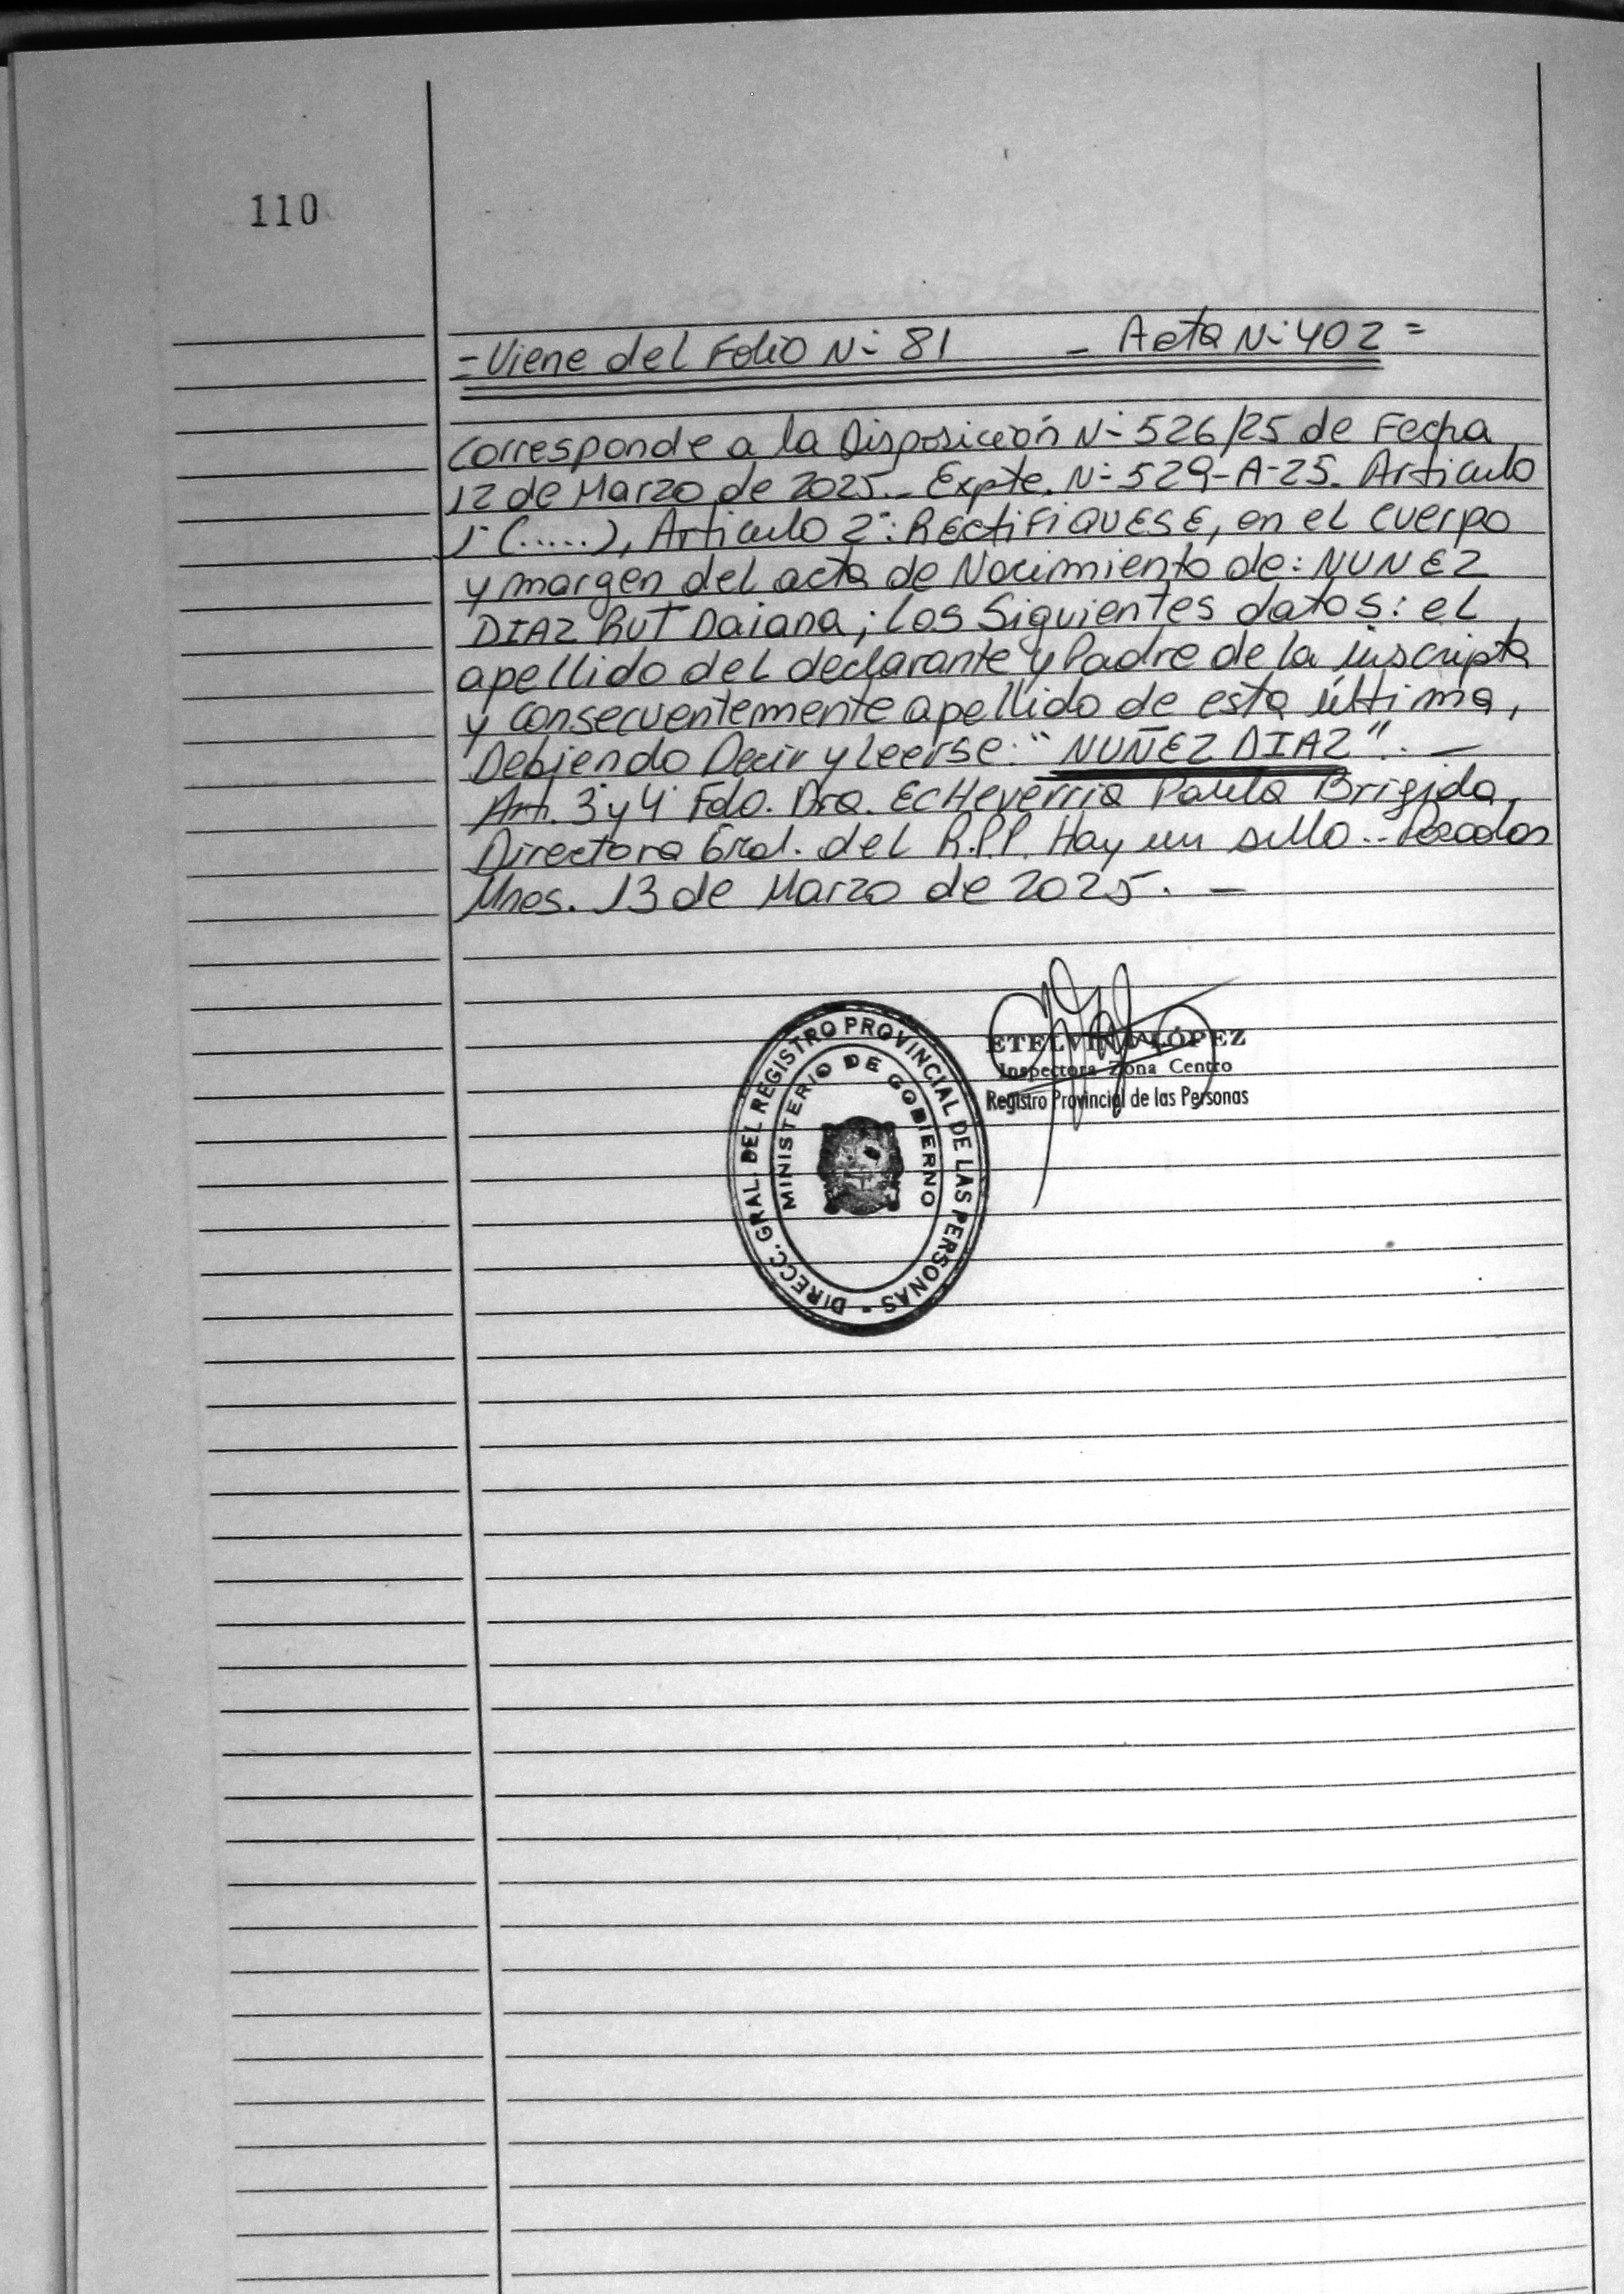 110
= Viene del Folio N- 81 - Acta N- 402 =
Corresponde a la Disposición N- 526/25 de Fecha
12 de Marzo de 2025.- Expte. N- 529-A-25. Articulo
1° (.....), Articulo 2°: RECTIFIQUESE, en el cuerpo
y margen del acta de Nacimiento de: NUNEZ
DIAZ RUT Daiana; Los Siguientes datos: el
apellido del declarante y Padre de la inscripta
y consecuentemente apellido de esta última,
Debiendo Decir y Leerse: "NUÑEZ DIAZ". -
Art. 3° y 4° Fdo. Dra. Echeverria Paula Brigida,
Directora Gral. del R.P.P. Hay un sello.- Posadas
Mnes. 13 de Marzo de 2025. -
ETELVINA LÓPEZ
Inspectora Zona Centro
Registro Provincial de las Personas
DIRECC. GRAL. DEL REGISTRO PROVINCIAL DE LAS PERSONAS -
MINISTERIO DE GOBIERNO